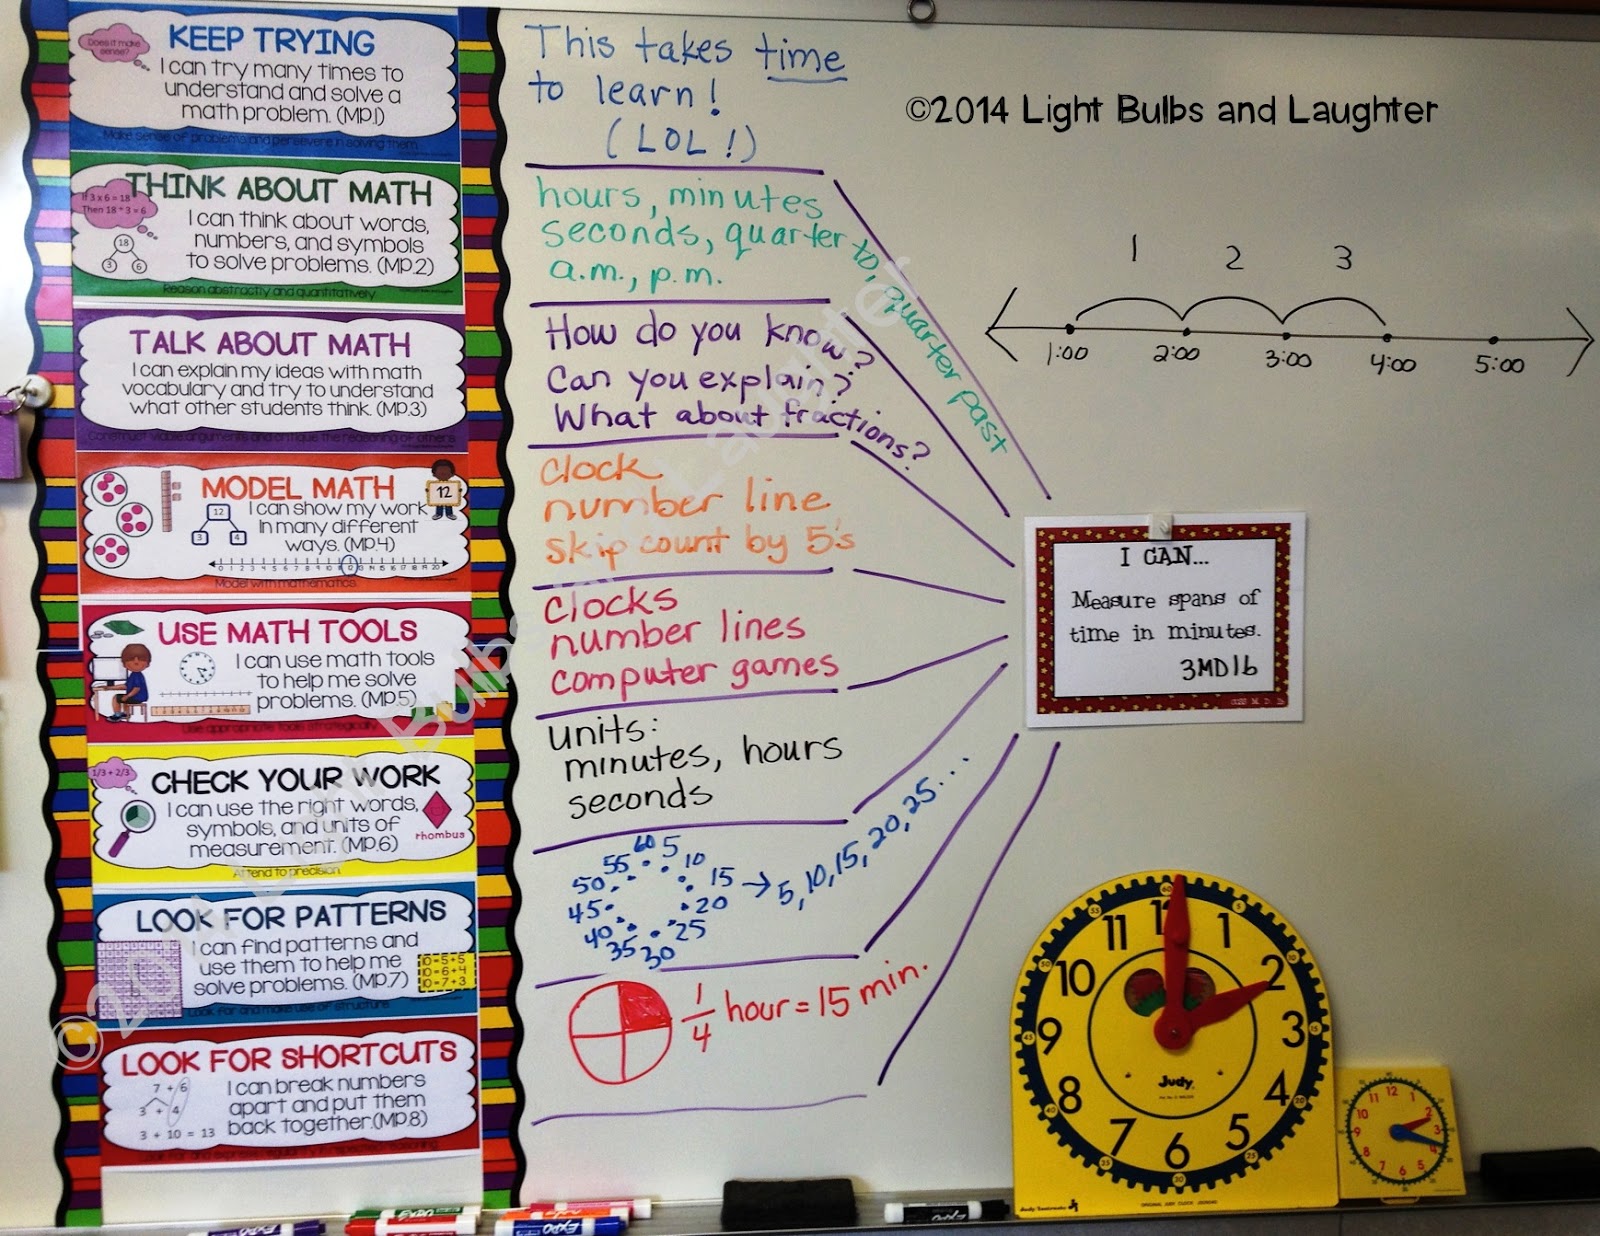 KEEP TRYING
Does it make
sense?
I can try many times to
understand and solve a
math problem. (MP.1)
Make sense of problems and persevere in solving them
THINK ABOUT MATH
If 3 x 6 = 18
Then 18 ÷ 3 = 6
18
3 6
I can think about words,
numbers, and symbols
to solve problems. (MP.2)
Reason abstractly and quantitatively
TALK ABOUT MATH
I can explain my ideas with math
vocabulary and try to understand
what other students think. (MP.3)
Construct viable arguments and critique the reasoning of others
MODEL MATH
12
12
3 4
I can show my work
in many different
ways. (MP.4)
0 1 2 3 4 5 6 7 8 9 10 11 12 13 14 15 16 17 18 19 20
Model with mathematics
USE MATH TOOLS
I can use math tools
to help me solve
problems. (MP.5)
Use appropriate tools strategically
CHECK YOUR WORK
1/3 + 2/3
I can use the right words,
symbols, and units of
measurement. (MP.6)
rhombus
Attend to precision
LOOK FOR PATTERNS
I can find patterns and
use them to help me
solve problems. (MP.7)
10=5+5
10=6+4
10=7+3
Look for and make use of structure
LOOK FOR SHORTCUTS
7 + 6
3 + 4
3 + 10 = 13
I can break numbers
apart and put them
back together.(MP.8)
This takes time
to learn!
(LOL!)
hours, minutes
seconds, quarter to, quarter past
a.m., p.m.
How do you know?
Can you explain?
What about fractions?
clock
number line
skip count by 5's
clocks
number lines
computer games
units:
minutes, hours
seconds
60 5 10 15 20 25 30 35 40 45 50 55
→ 5, 10, 15, 20, 25...
1/4 hour = 15 min.
©2014 Light Bulbs and Laughter
1 2 3
1:00 2:00 3:00 4:00 5:00
I CAN...
Measure spans of
time in minutes.
3MD1b
12 1 2 3 4 5 6 7 8 9 10 11
60 5 10 15 20 25 30 35 40 45 50 55
Judy
12 1 2 3 4 5 6 7 8 9 10 11
©2014 Light Bulbs and Laughter
EXPO
EXPO
EXPO